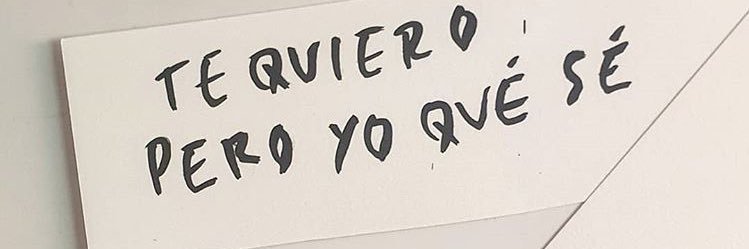 TE QUIERO
PERO YO QUÉ SÉ